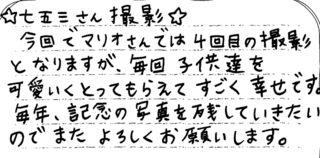 ☆七五三さん撮影☆
今回でマリオさんでは4回目の撮影
となりますが、毎回子供達を
可愛いくとってもらえてすごく幸せです。
毎年、記念の写真を残していきたい
のでまたよろしくお願いします。